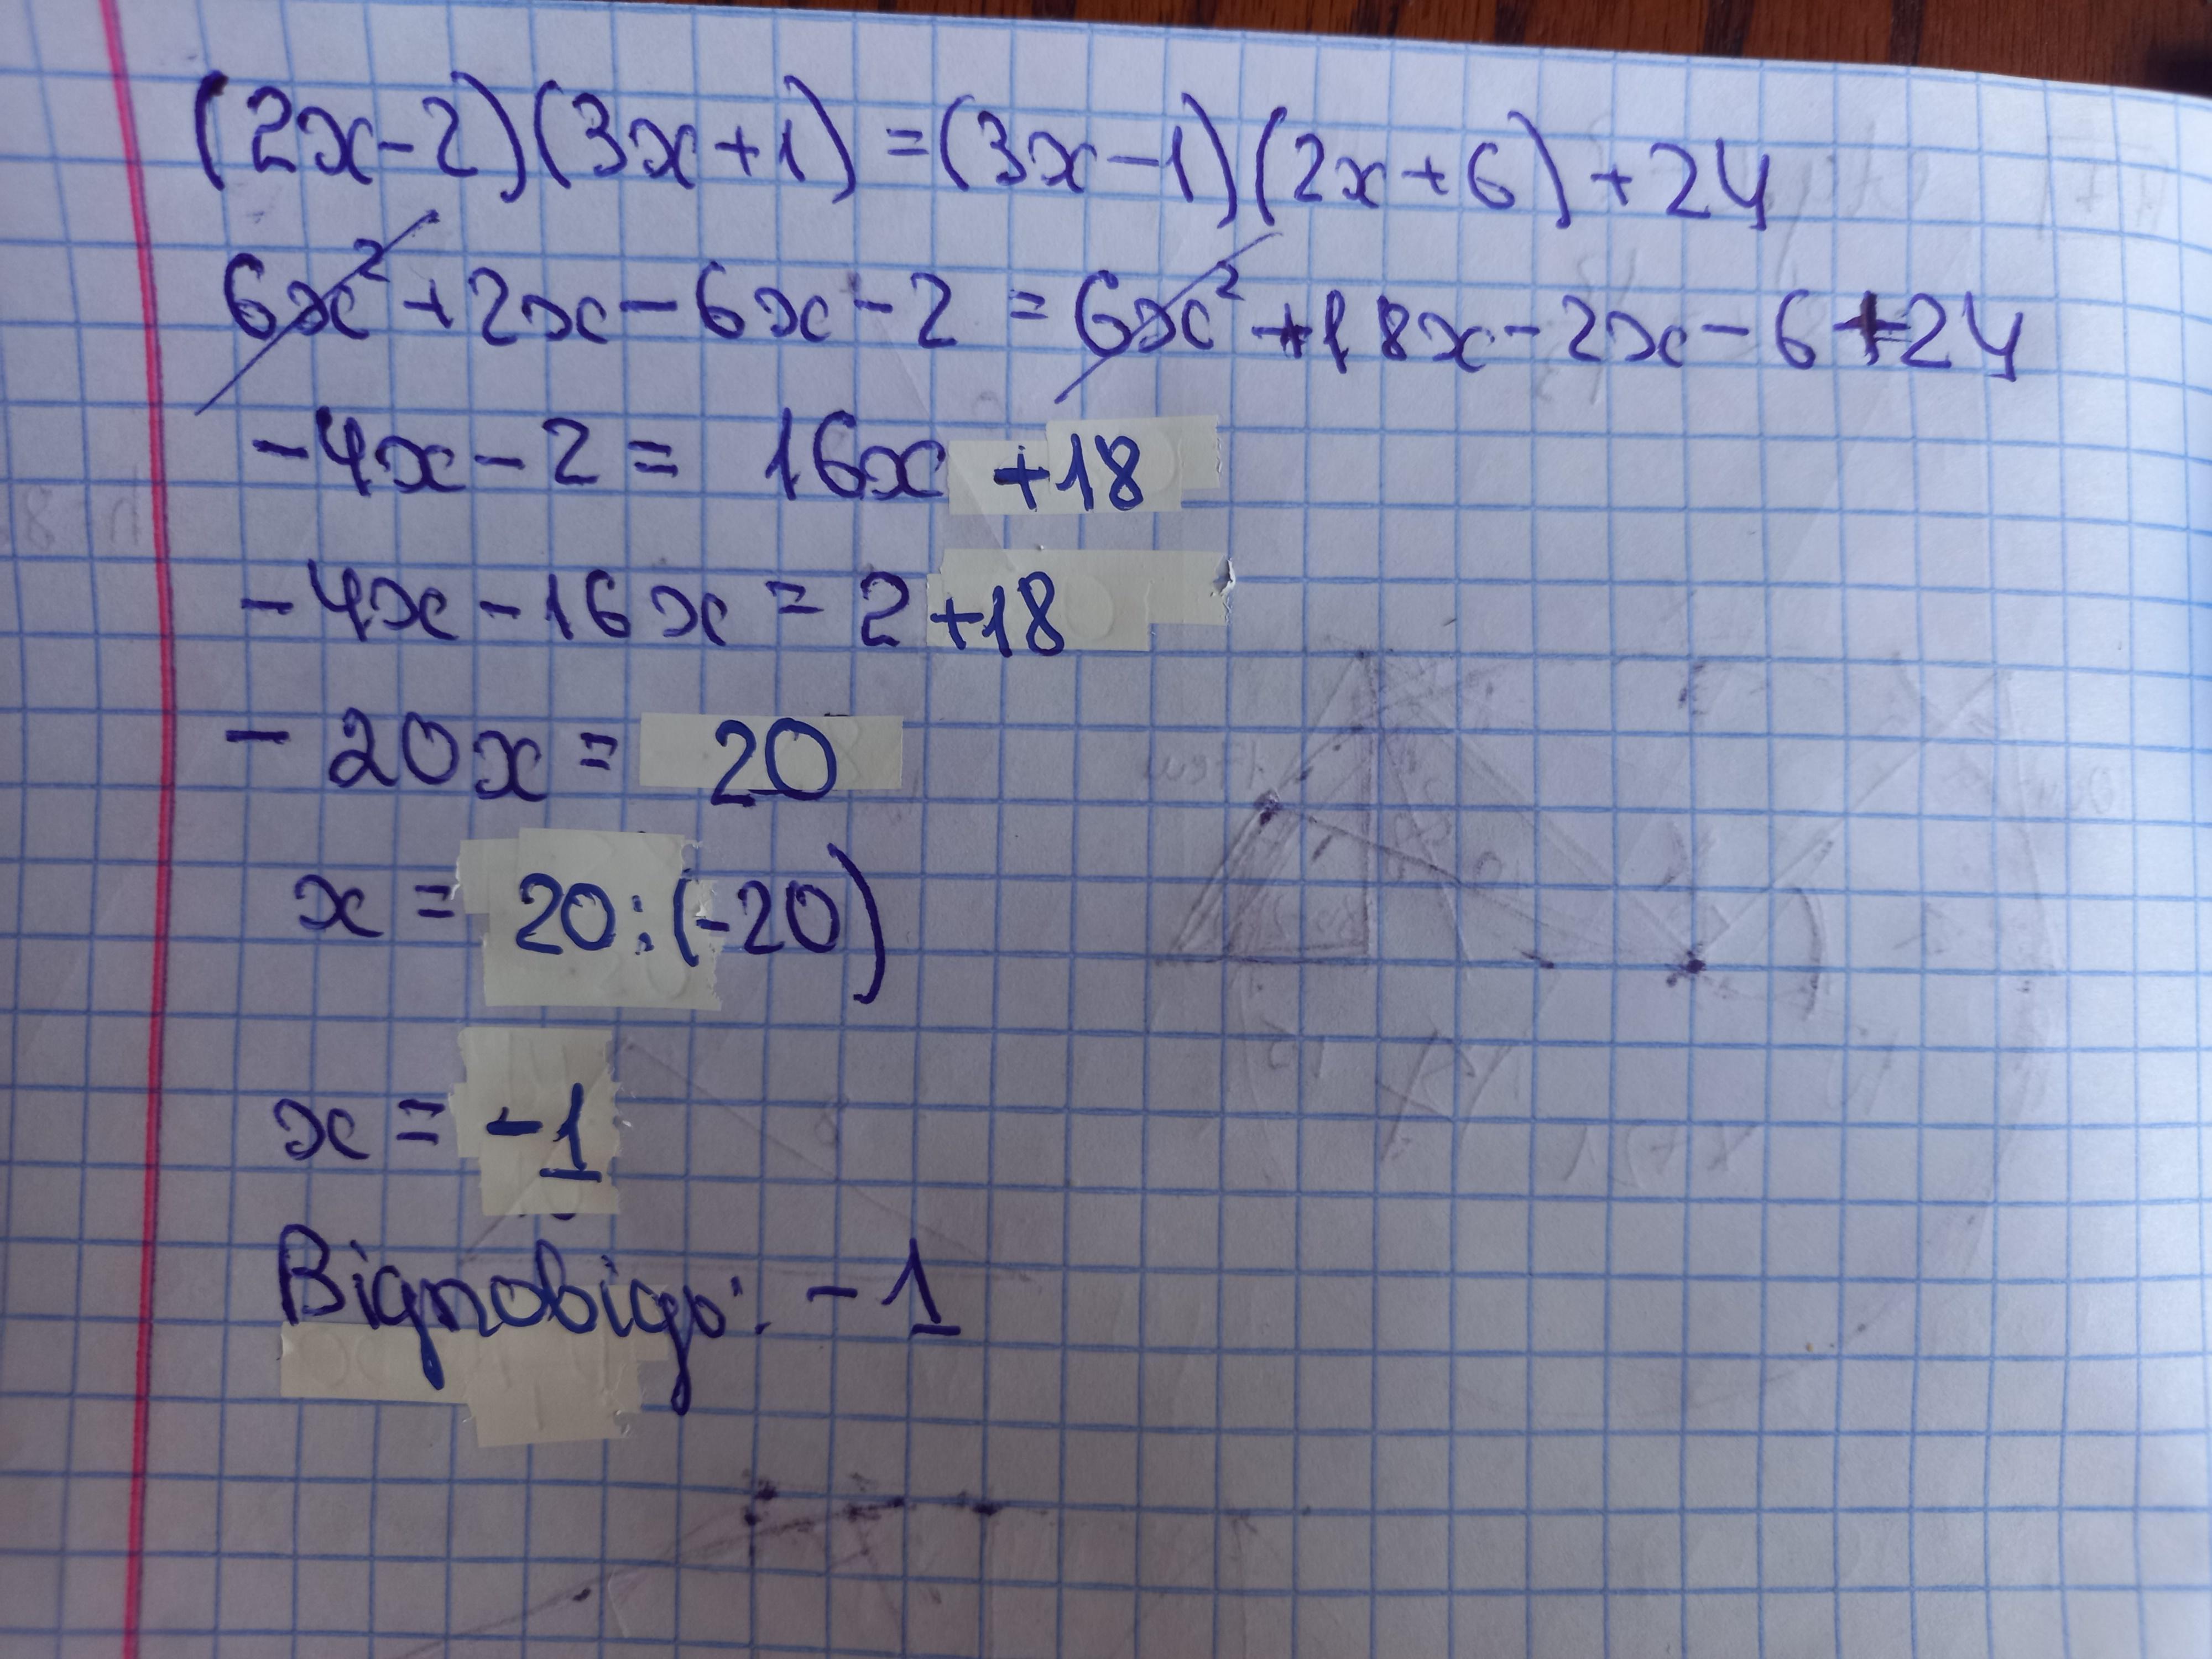 (2x-2)(3x+1)=(3x-1)(2x+6)+24
6x²+2x-6x-2=6x²+18x-2x-6+24
-4x-2= 16x +18
-4x-16x=2+18
-20x= 20
x= 20:(-20)
x= -1
Відповідь: -1